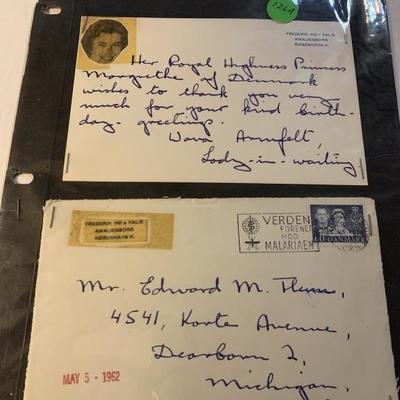 126A
FREDERIK VIII's PALÆ
AMALIENBORG
KØBENHAVN K.
Her Royal Highness Princess
Margrethe of Denmark
wishes to thank you very
much for your kind birth-
day-greetings.
Wava Armfelt,
Lady-in-waiting
FREDERIK VIII's PALÆ
AMALIENBORG
KØBENHAVN K.
VERDEN
FORENET
MOD
MALARIAEN
DANMARK
Mr. Edward M.
4541, Korte Avenue,
Dearborn 2,
Michigan.
MAY 5 - 1962